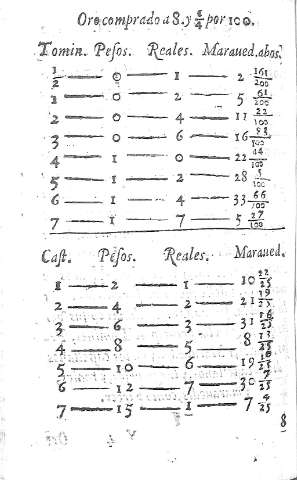 Oro comprado a 8. y 6/4 por 100.
Tomin. Pesos. Reales. Maraued. abos.
1/2 — 0 — 1 — 2 161/200
1 — 0 — 2 — 5 61/200
2 — 0 — 4 — 11 22/100
3 — 0 — 6 — 16 83/100
4 — 1 — 0 — 22 44/100
5 — 1 — 2 — 28 5/100
6 — 1 — 4 — 33 66/100
7 — 1 — 7 — 5 27/100
Cast. Pesos. Reales. Maraued.
1 — 2 — 1 — 10 22/25
2 — 4 — 2 — 21 19/25
3 — 6 — 3 — 31 16/25
4 — 8 — 5 — 8 13/25
5 — 10 — 6 — 19 10/25
6 — 12 — 7 — 30 7/25
7 — 15 — 1 — 7 4/25
8